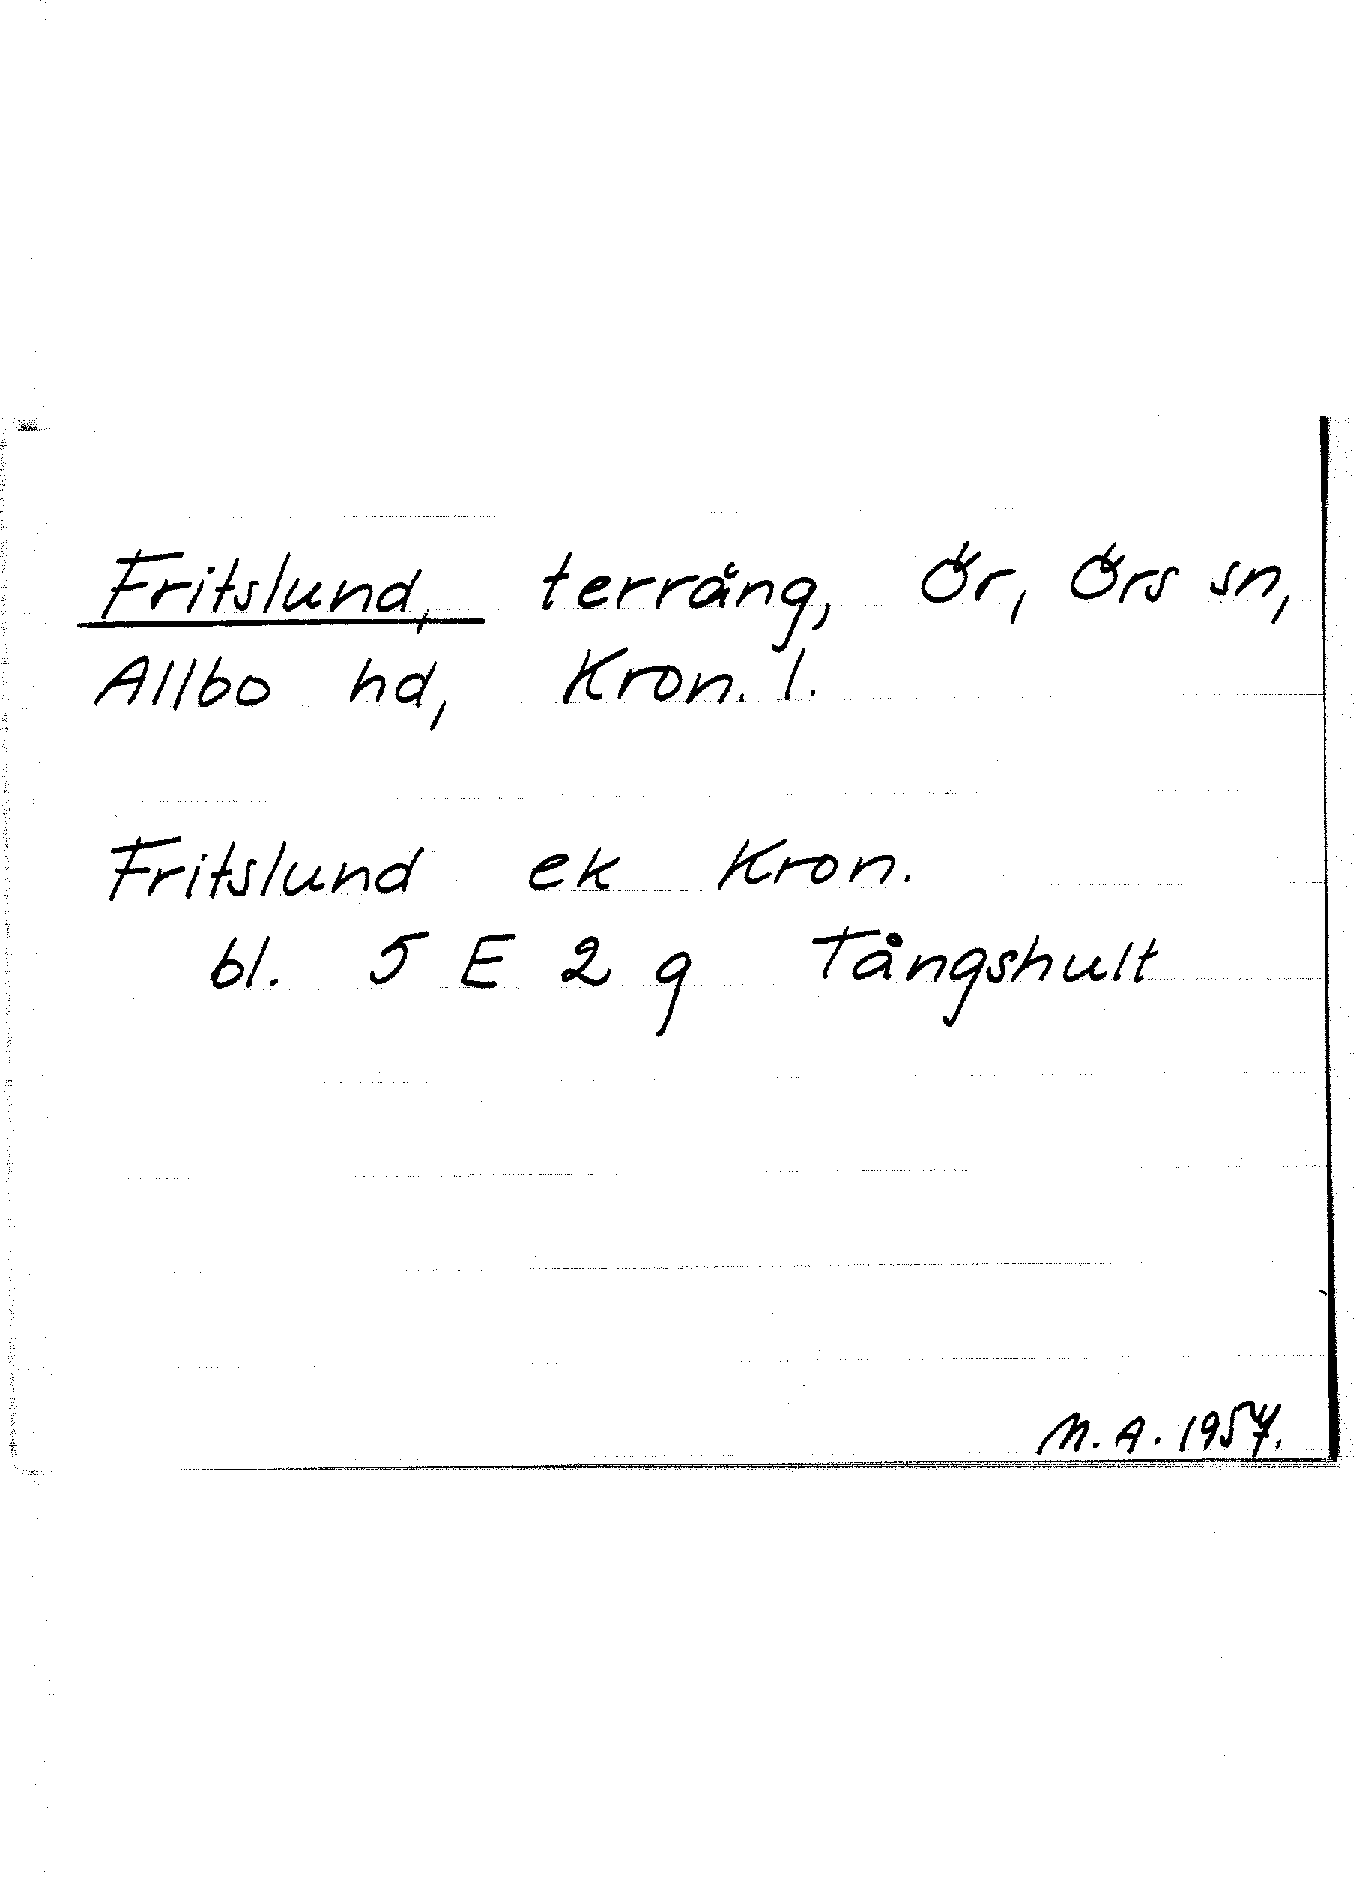 Fritslund, terräng, Ör, Örs sn,
Allbo hd, Kron. l.
Fritslund ek Kron.
bl. 5 E 2 g Tångshult
M.A. 1957.